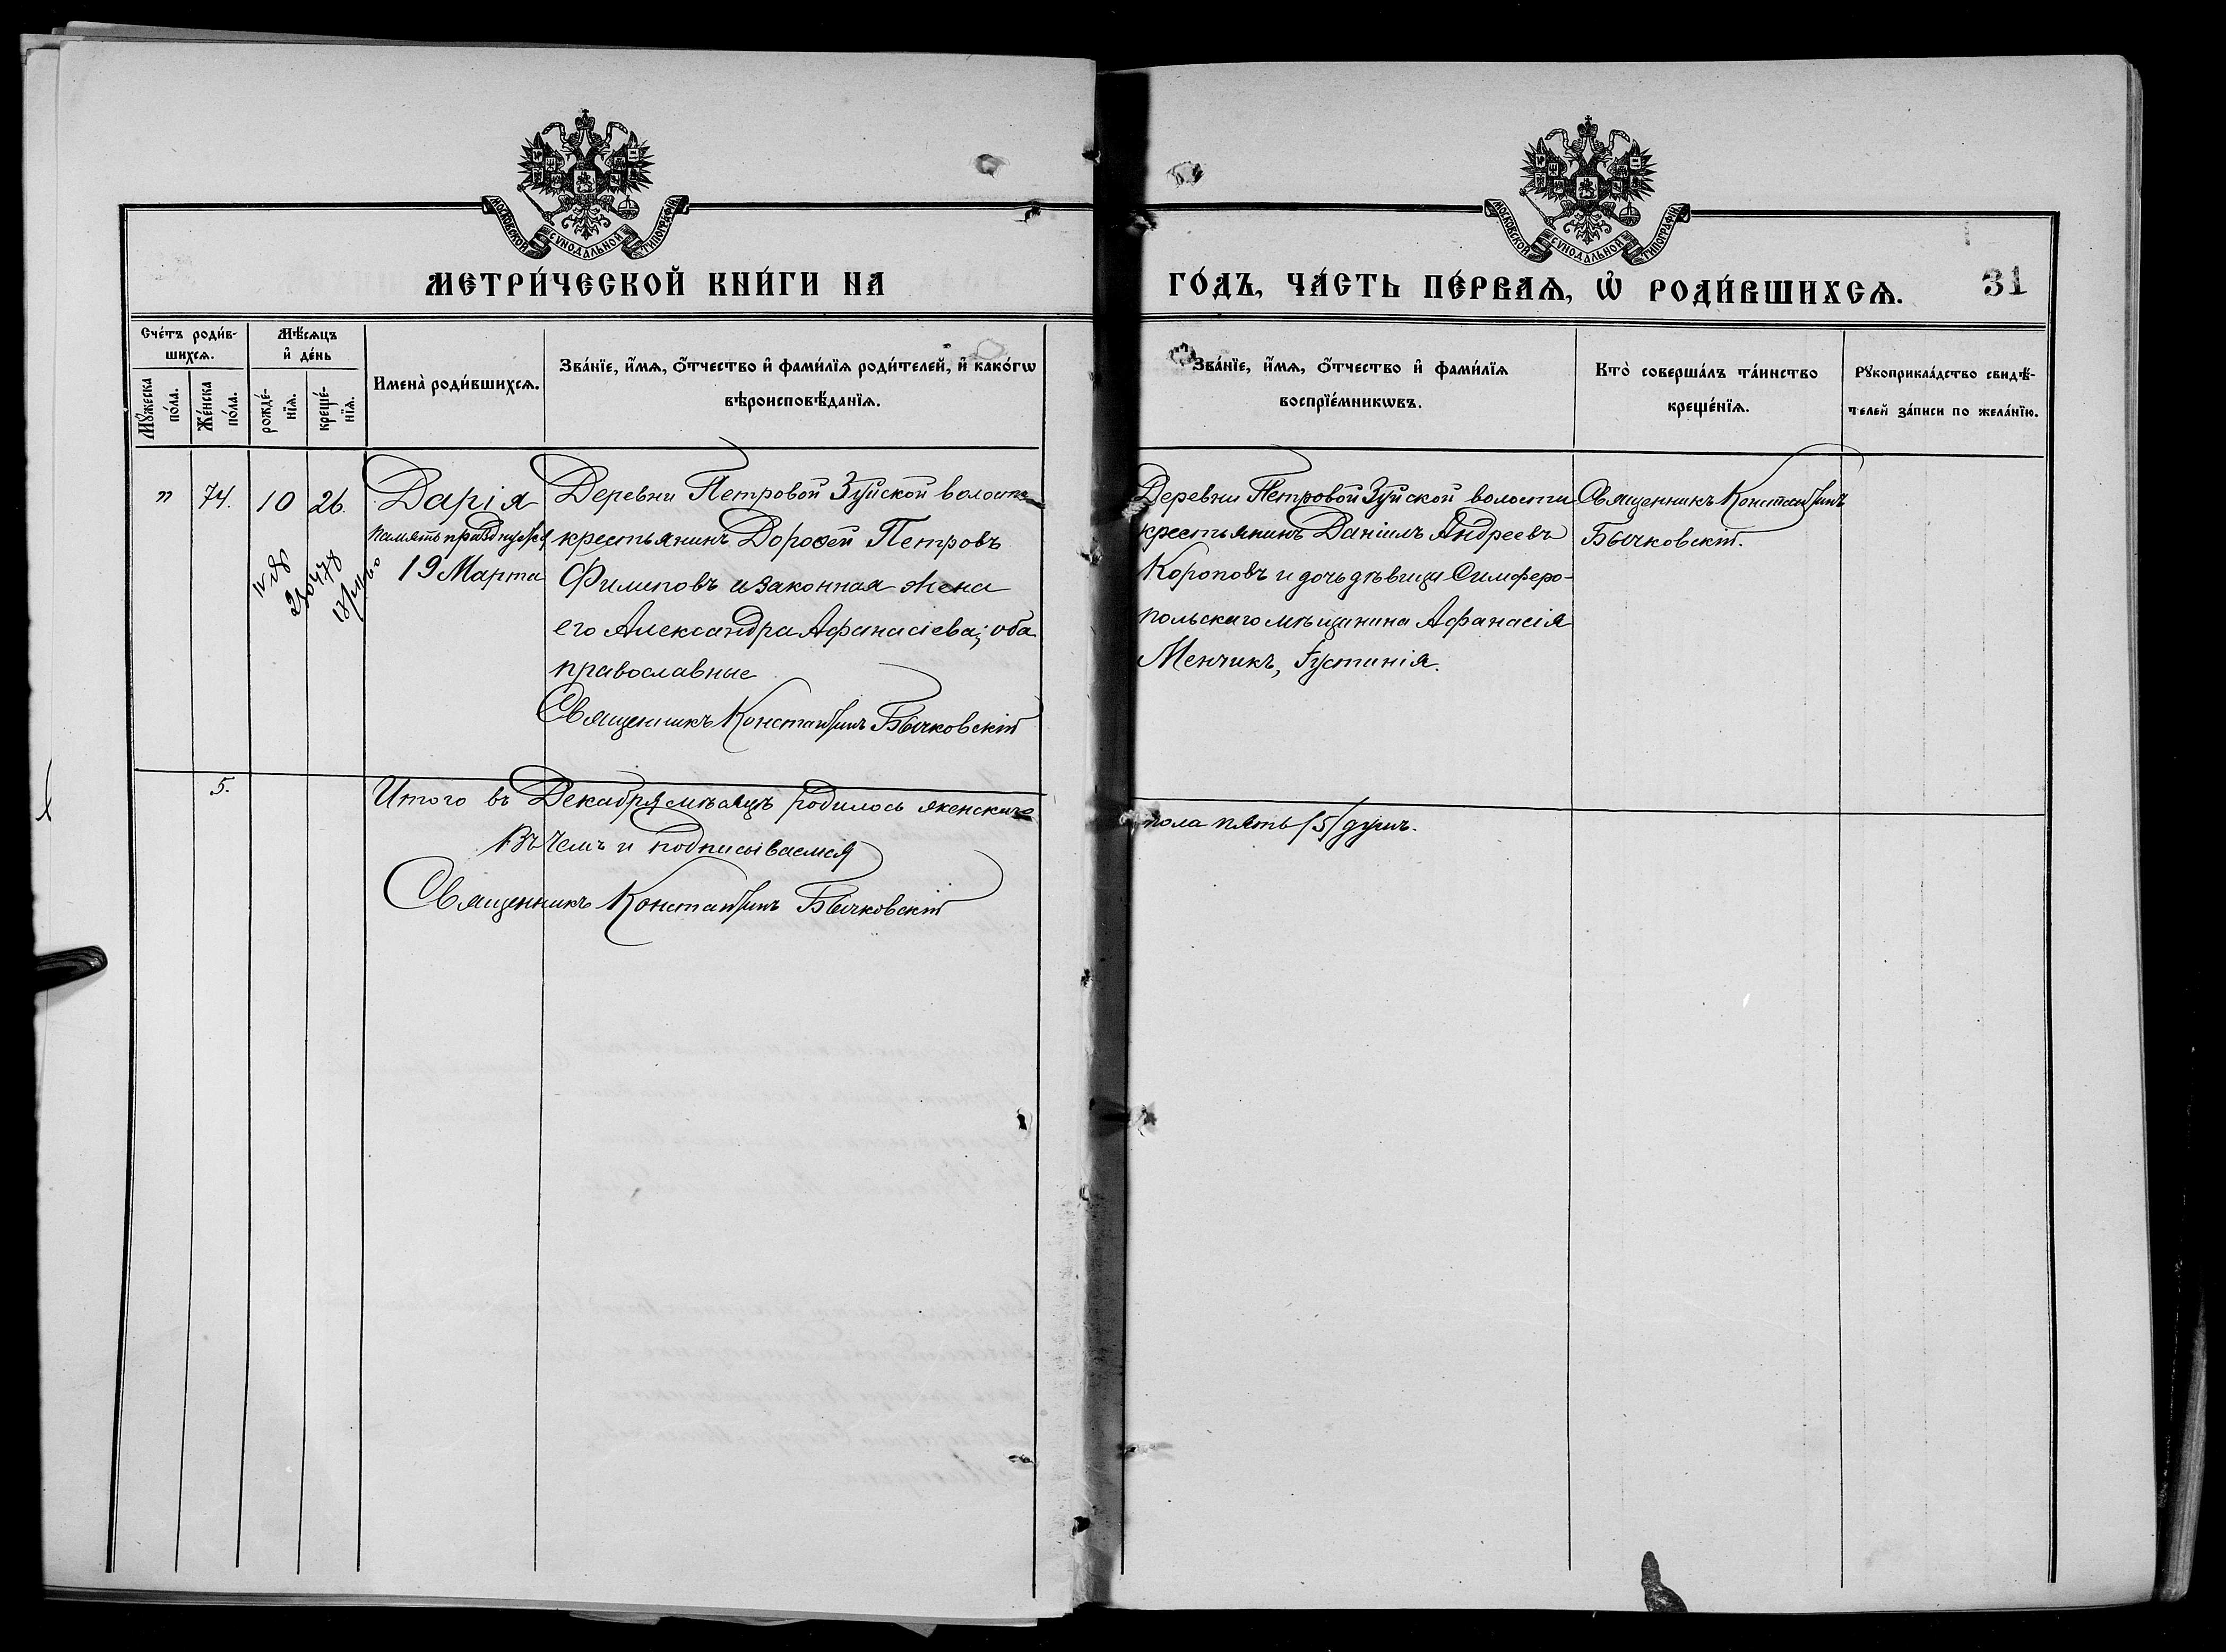 МОСКОВСКОЙ СУНОДАЛЬНОЙ ТИПОГРАФІИ
МОСКОВСКОЙ СУНОДАЛЬНОЙ ТИПОГРАФІИ
МЕТРИ́ЧЕСКОЙ КНИ́ГИ НА
ГО́ДЪ, ЧА́СТЬ ПЕ́РВАѦ, Ѽ РОДИ́ВШИХСѦ.
31
Сче́тъ роди́в-
шихсѧ.
Мѣ́сѧцъ
и҆ де́нь
Мꙋ́жеска
по́ла.
Же́нска
по́ла.
рожде́-
нїѧ.
креще́-
нїѧ.
Имена̀ роди́вшихсѧ.
Зва́нїе, и҆́мѧ, ѻ҆́тчество и҆ фами́лїѧ роди́телей, и҆ како́гѡ
вѣроисповѣ́данїѧ.
Зва́нїе, и҆́мѧ, ѻ҆́тчество и҆ фами́лїѧ
воспрїе́мникѡвъ.
Кто̀ соверша́лъ та́инство
креще́нїѧ.
Рꙋкоприкла́дство свидѣ́-
телей за́писи по жела́нїю.
" 74. 10 26.
Дарія
память празднуется
19 Марта
Деревни Петровой Зуйской волости
крестьянинъ Дорофей Петровъ
Филиповъ и законная жена
его Александра Афанасіева; оба
православные
Священникъ Константинъ Бычковскій
Деревни Петровой Зуйской волости
крестьянинъ Даніилъ Андреевъ
Короповъ и дочь дѣвица Симферо-
польскаго мѣщанина Афанасія
Менчикъ, Іустинія.
Священникъ Константинъ
Бычковскій.
5.
Итого въ Декабрѣ мѣсяцѣ родилось женскаго
пола пять /5/ душъ.
Въ чемъ и подписываемся
Священникъ Константинъ Бычковскій